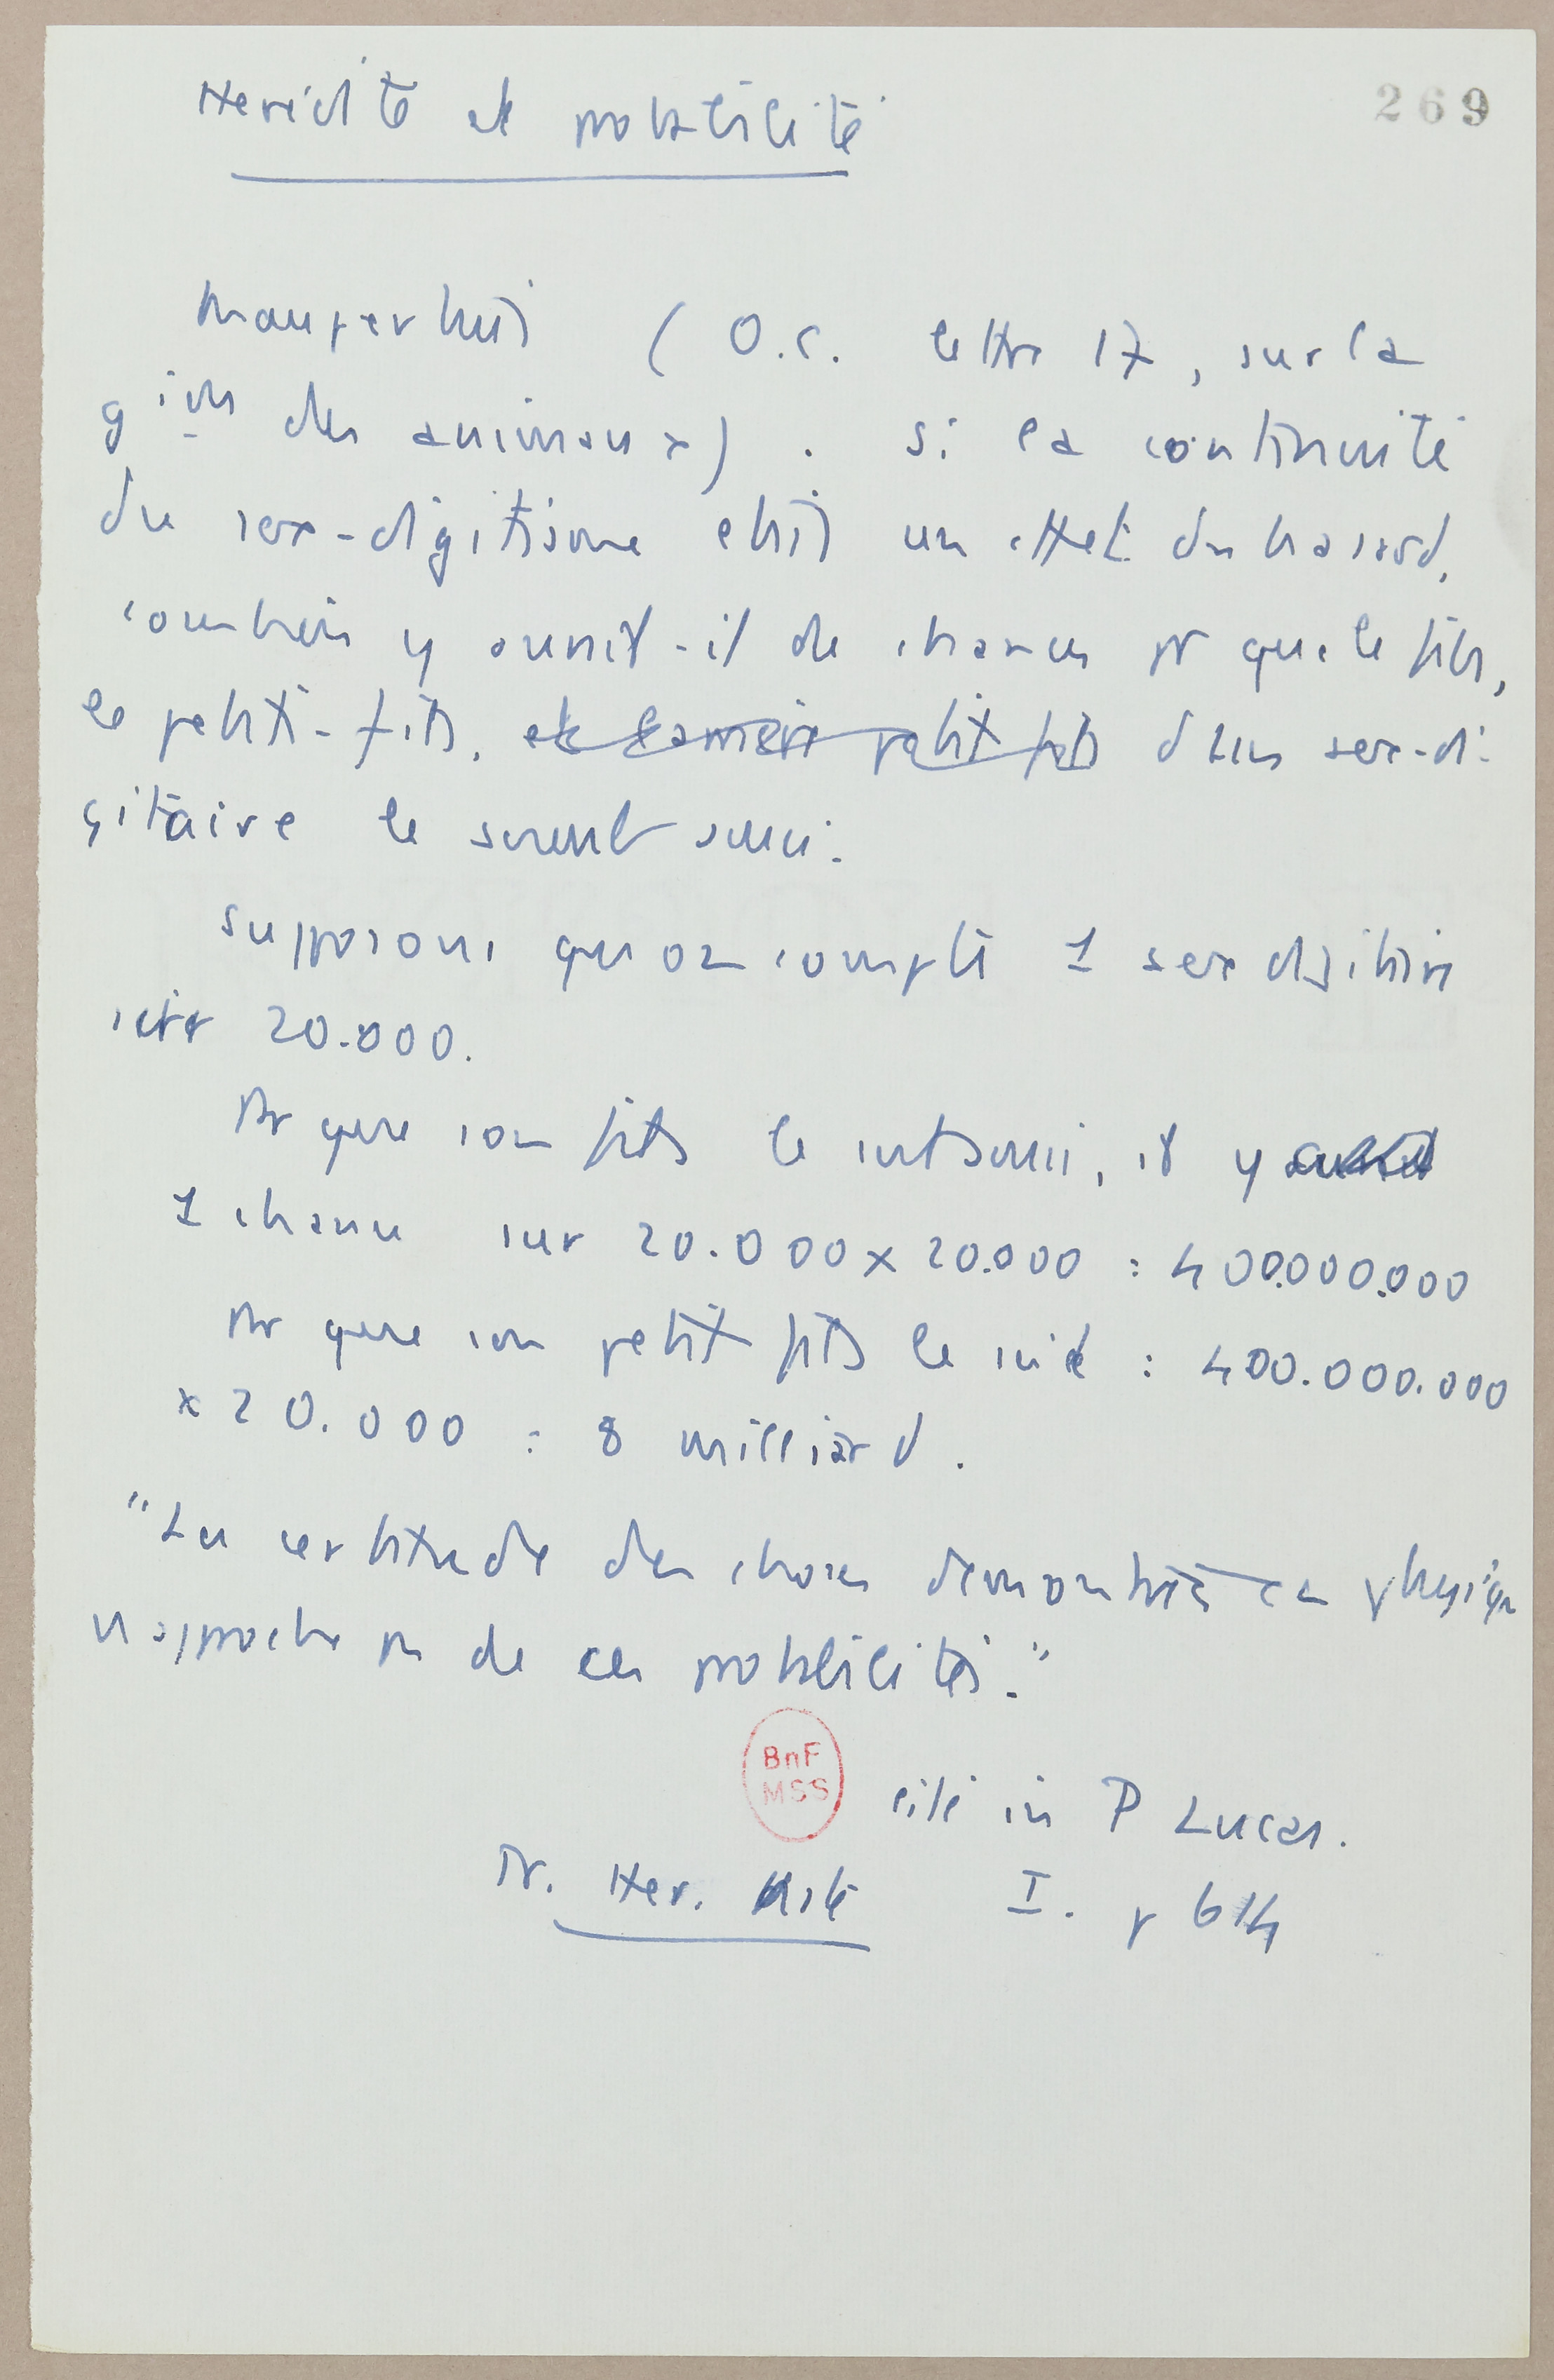 269
Heridité et probabilité
Maupertuis (O.C. lettre 17, sur la
g^ion des animaux). Si la continuité
du sex-digitisme était un effet du hasard,
combien y aurait-il de chances pr que le fils,
le petit-fils, et l'arrière petit fils d'un sex-di
gitaire le soient aussi.
Supposons qu'on compte 1 sexdigitaire
sur 20.000.
Pr que son fils le soit aussi, il y a
1 chance sur 20.000 x 20.000 = 400.000.000
Pr que son petit fils le soit : 400.000.000
x 20.000 = 8 milliard.
"La certitude des choses démontrées en physique
n'approche pas de ces probabilités."
BnF
MSS
cité in P Lucas.
Tr. Her. Nlle I. p 614